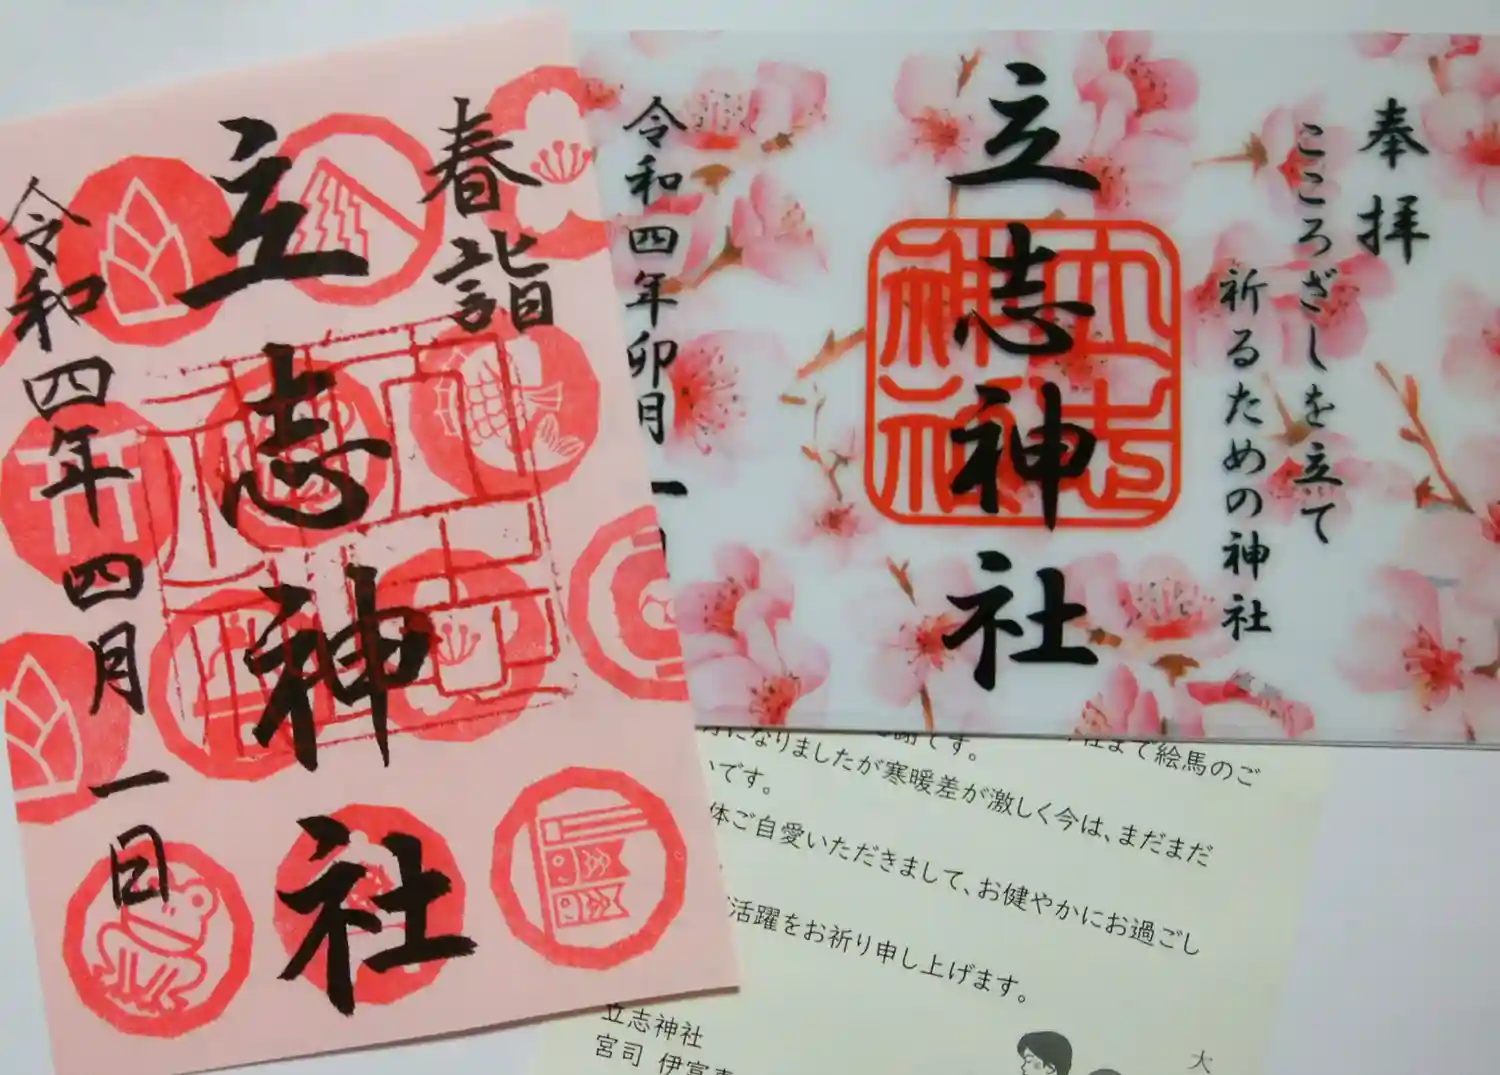 春詣
立志神社
令和四年四月一日
奉拝
こころざしを立て
祈るための神社
立志神社
立志神社
令和四年卯月一日
です。
社まで絵馬のご
になりましたが寒暖差が激しく今は、まだまだ
です。
体ご自愛いただきまして、お健やかにお過ごし
活躍をお祈り申し上げます。
立志神社
宮司 伊
大